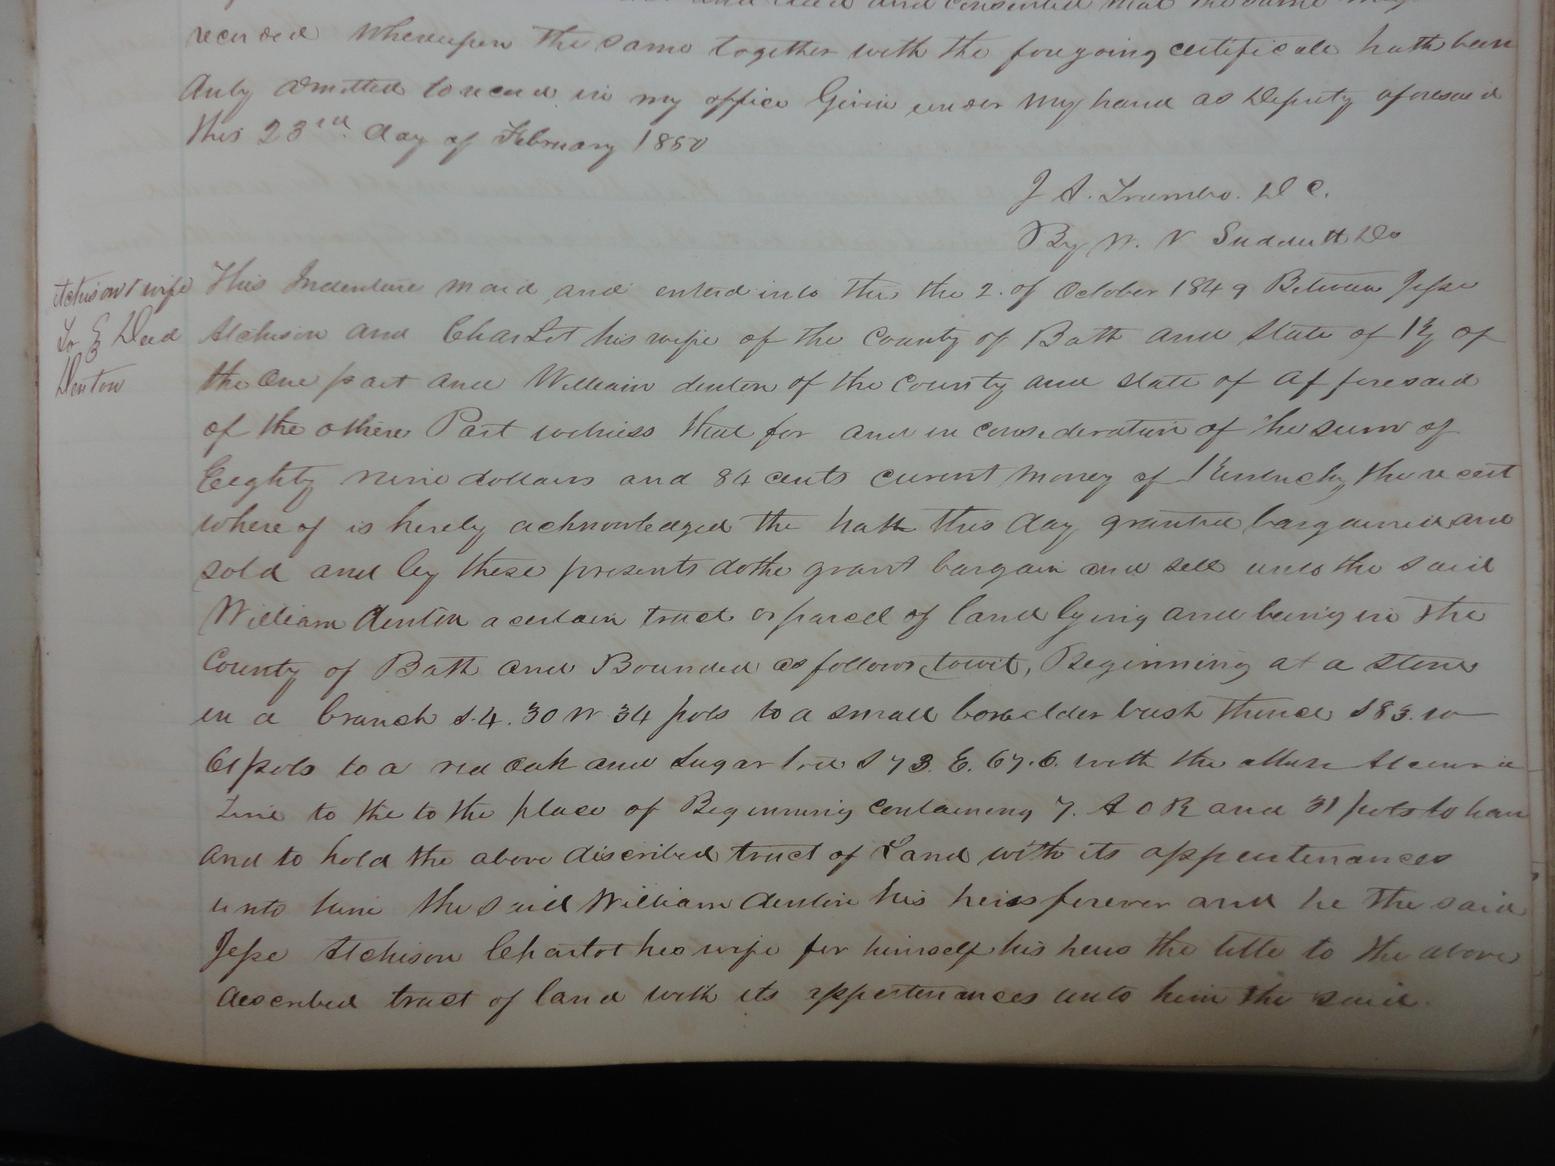 and deed and consented that the same may
recorded Whereupon the same together with the foregoing certificate hath been
duly admitted to record in my office Given under my hand as Deputy aforesaid
this 23rd day of February 1850
J A. Trumbo. D C.
By W. N Suddutt Dc
Atchison & wife
To } Deed
Denton
This Indenture maid and enterd into the the 2. of October 1849 Between Jesse
Atchison and Charlot his wife of the County of Bath and State of Ky of
the One part and William denton of the County and state of afforesaid
of the othere Part witness that for and in consideration of the sum of
Eeighty nine dollars and 84 cents current money of Kentucky the receit
where of is hereby acknowledged the hath this day granted bargained and
sold and by these presents dothe grant bargain and sell unto the said
William denton a certain tract or parcel of land lying and being in the
County of Bath and Bounded as follows towit, Beginning at a stone
in a branch S.4.30 W 34 pols to a small boxelder bush thence S83. W
61 pols to a red Oak and Sugar tree S 73. E. 67.6. with the
Line to the to the place of Beginning containing 7. A 0 R and 31 pols to have
and to hold the above discribed tract of Land with its appertenances
unto him the said William denton his heirs forever and he the said
Jesse Atchison Charlot his wife for himself his heirs the title to the above
described tract of land with its appertenances unto him the said.